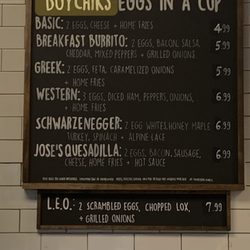 BOYCHIKS EGGS IN A CUP
BASIC: 2 EGGS, CHEESE + HOME FRIES 4.99
BREAKFAST BURRITO: 2 EGGS, BACON, SALSA, 5.99
CHEDDAR, MIXED PEPPERS + GRILLED ONIONS
GREEK: 2 EGGS, FETA, CARAMELIZED ONIONS 5.99
+ HOME FRIES
WESTERN: 3 EGGS, DICED HAM, PEPPERS, ONIONS, 6.99
+ HOME FRIES
SCHWARZENEGGER: 2 EGG WHITES, HONEY MAPLE 6.99
TURKEY, SPINACH + ALPINE LACE
JOSE'S QUESADILLA: 2 EGGS, BACON, SAUSAGE, 6.99
CHEESE, HOME FRIES + HOT SAUCE
L.E.O.: 2 SCRAMBLED EGGS, CHOPPED LOX, 7.99
+ GRILLED ONIONS